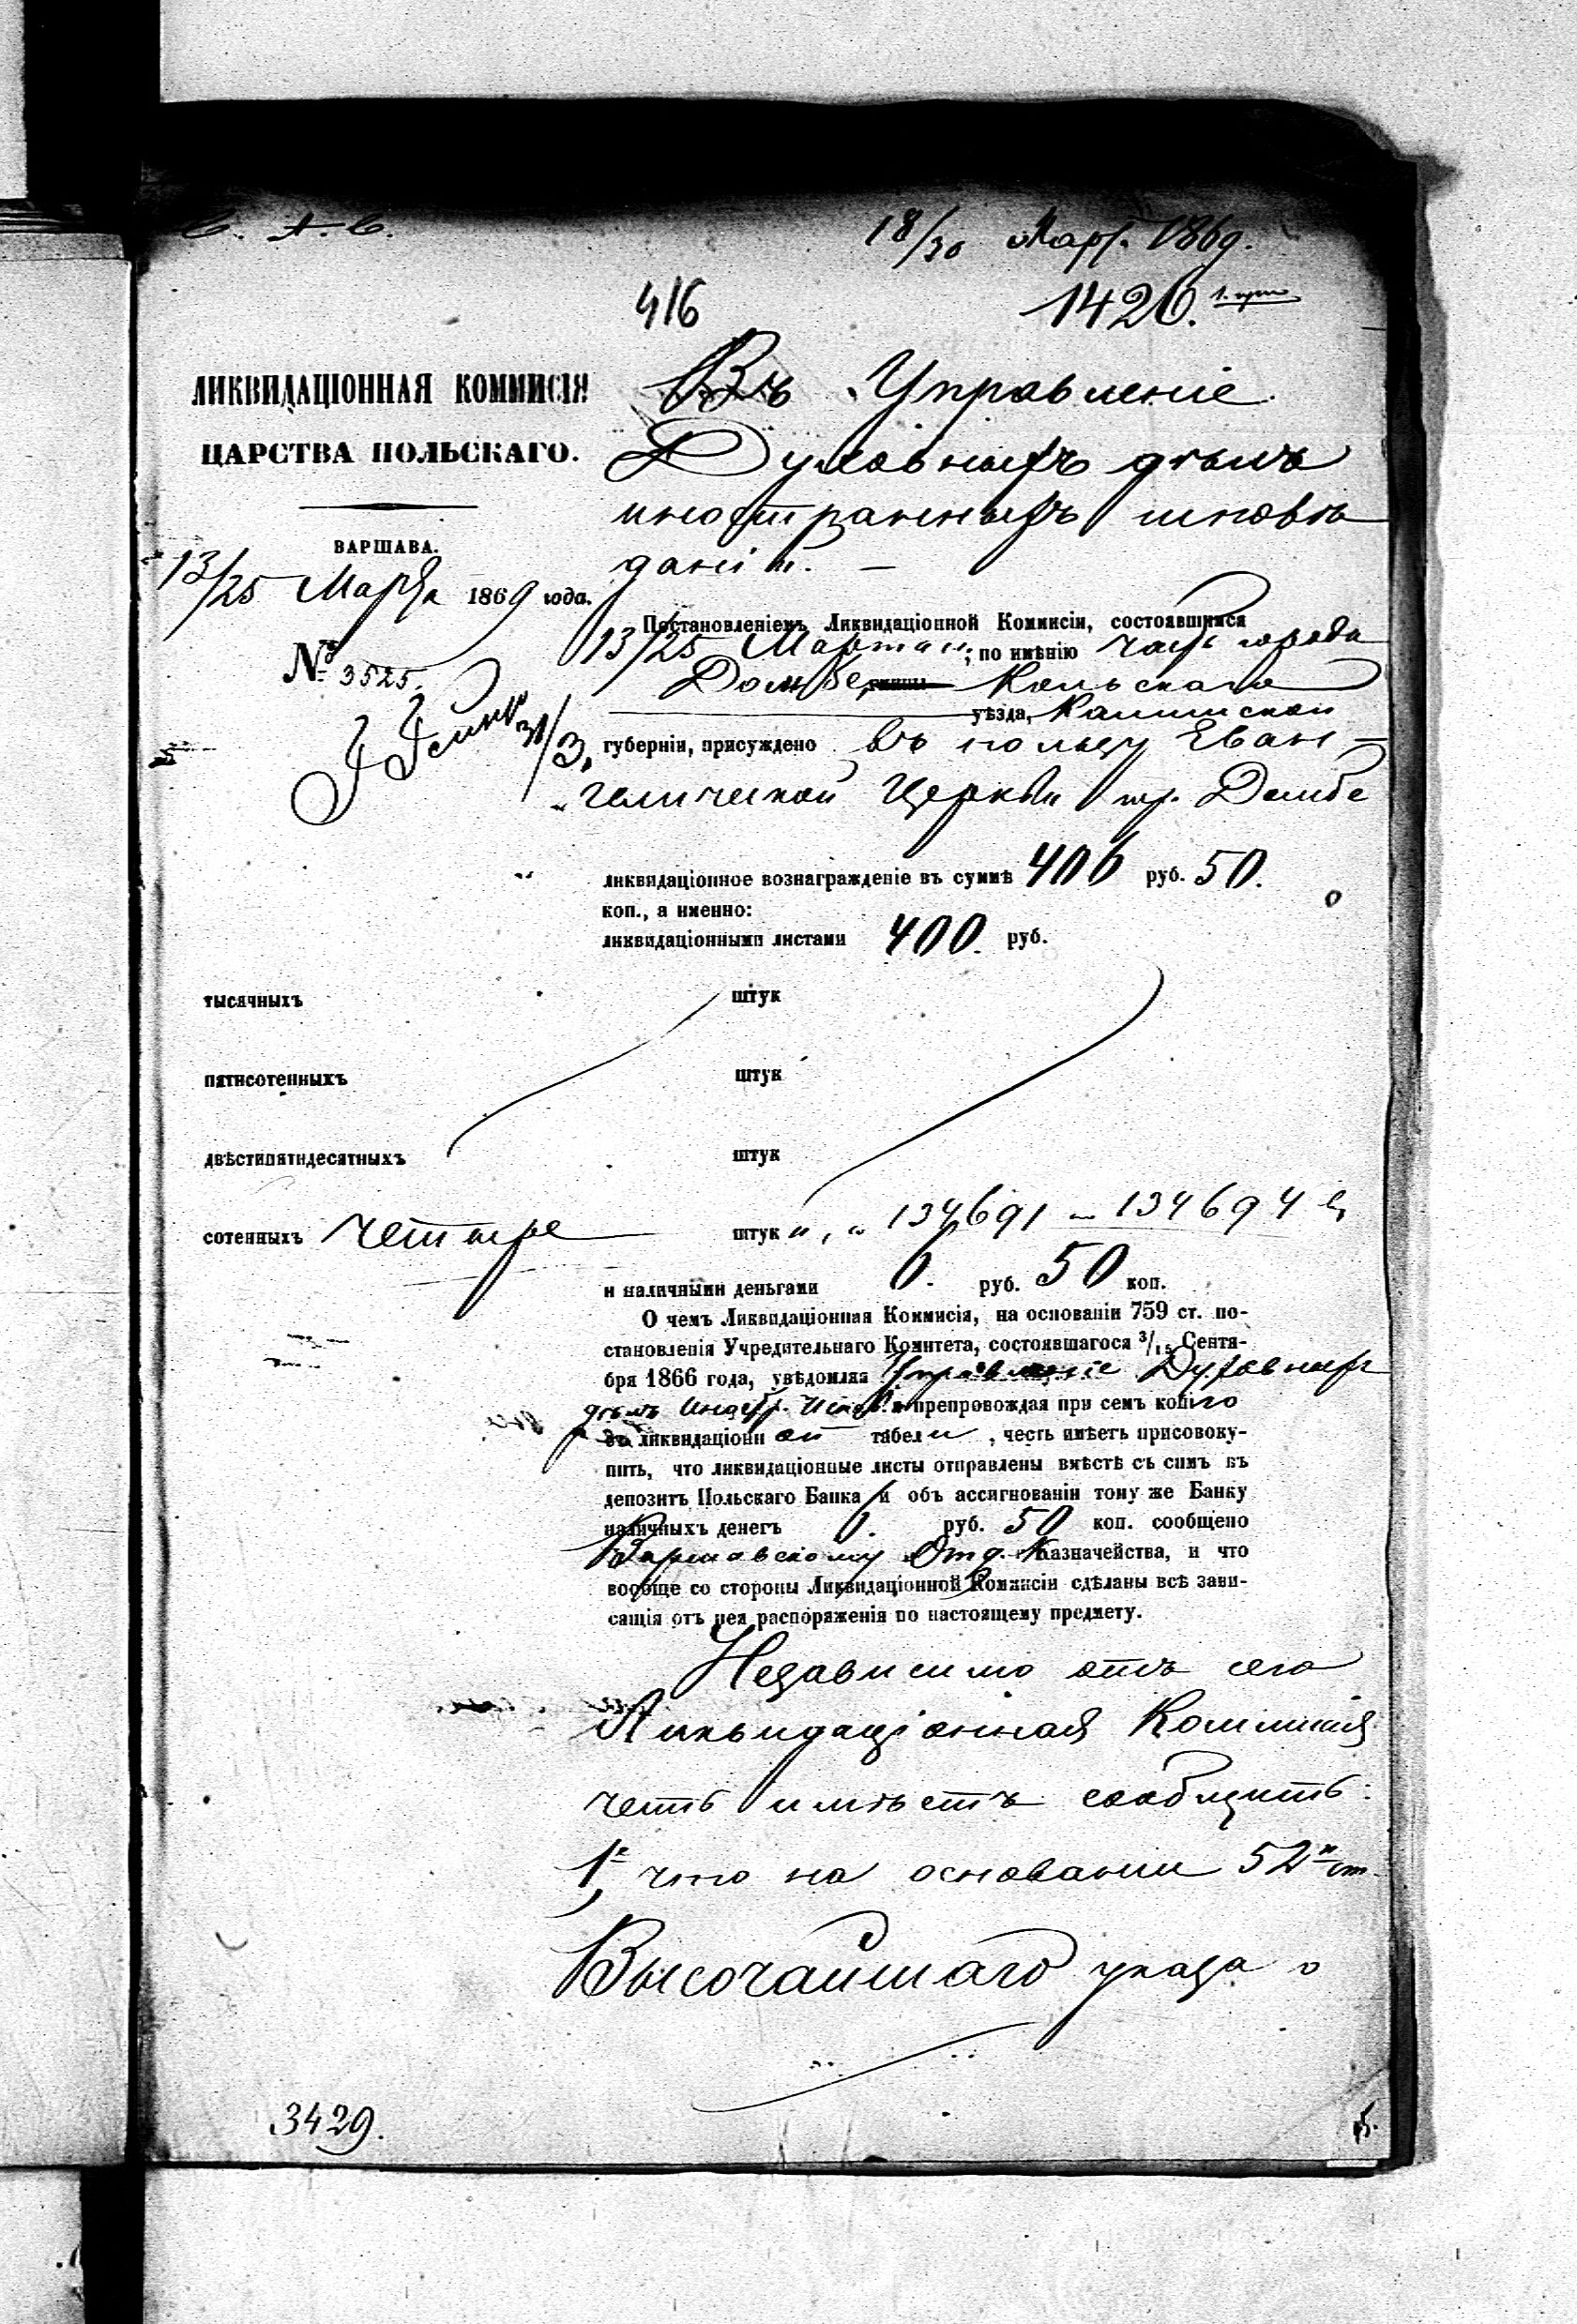 18/30 Март. 1869.
416
1426.
ЛИКВИДАЦІОННАЯ КОММИСІЯ
ЦАРСТВА ПОЛЬСКАГО.
ВАРШАВА.
13/25 Марта 1869 года.
№ 3525.
31/3
Въ Управленіе
Духовныхъ дѣлъ
иностранныхъ исповѣ
даній. —
Постановленіемъ Ликвидаціонной Коммисіи, состоявшимся
13/25 Марта, по имѣнію часть города
Домбе, Кольскаго
уѣзда, Калишской
губерніи, присуждено въ пользу Еван-
гелической Церкви гор. Домбе
ликвидаціонное вознагражденіе въ суммѣ 406 руб. 50.
коп., а именно:
ликвидаціонными листами 400. руб.
тысячныхъ штук
пятисотенныхъ штук
двѣстипятидесятныхъ штук
сотенныхъ четыре штук „ „ 134691 — 134694
и наличными деньгами 6. руб. 50 коп.
О чемъ Ликвидаціонная Коммисія, на основаніи 759 ст. по-
становленія Учредительнаго Комитета, состоявшагося 3/15 Сентя-
бря 1866 года, увѣдомляя Управленіе Духовныхъ
дѣлъ Иностр. Испов. и препровождая при семъ копію
ликвидаціонной табели, честь имѣетъ присовоку-
пить, что ликвидаціонные листы отправлены вмѣстѣ съ симъ въ
депозитъ Польскаго Банка и объ ассигнованіи тому же Банку
наличныхъ денегъ 6. руб. 50 коп. сообщено
Варшавскому Отд. Казначейства, и что
вообще со стороны Ликвидаціонной Коммисіи сдѣланы всѣ зави-
сящія отъ нея распоряженія по настоящему предмету.
Независимо отъ сего
Ликвидаціонная Коммисія
честь имѣетъ сообщить:
1е, что на основаніи 52й ст.
Высочайшаго указа о
3429.